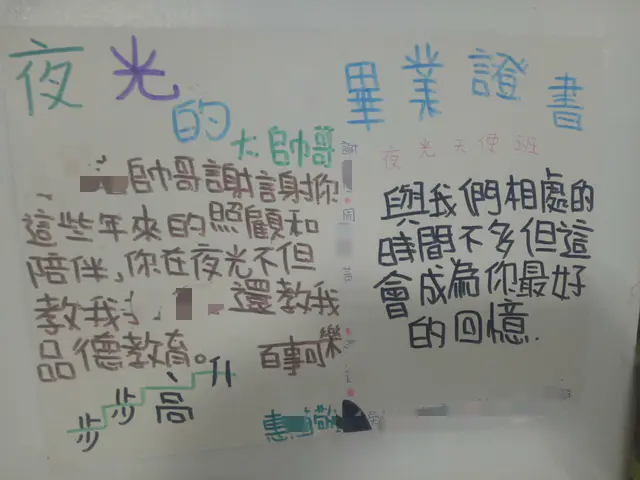 夜光
的
大帥哥
帥哥謝謝你
這些年來的照顧和
陪伴,你在夜光不但
教我 還教我
品德教育。 百事可樂
步步高升
敬
畢業證書
夜光天使班
與我們相處的
時間不多但這
會成為你最好
的回憶.